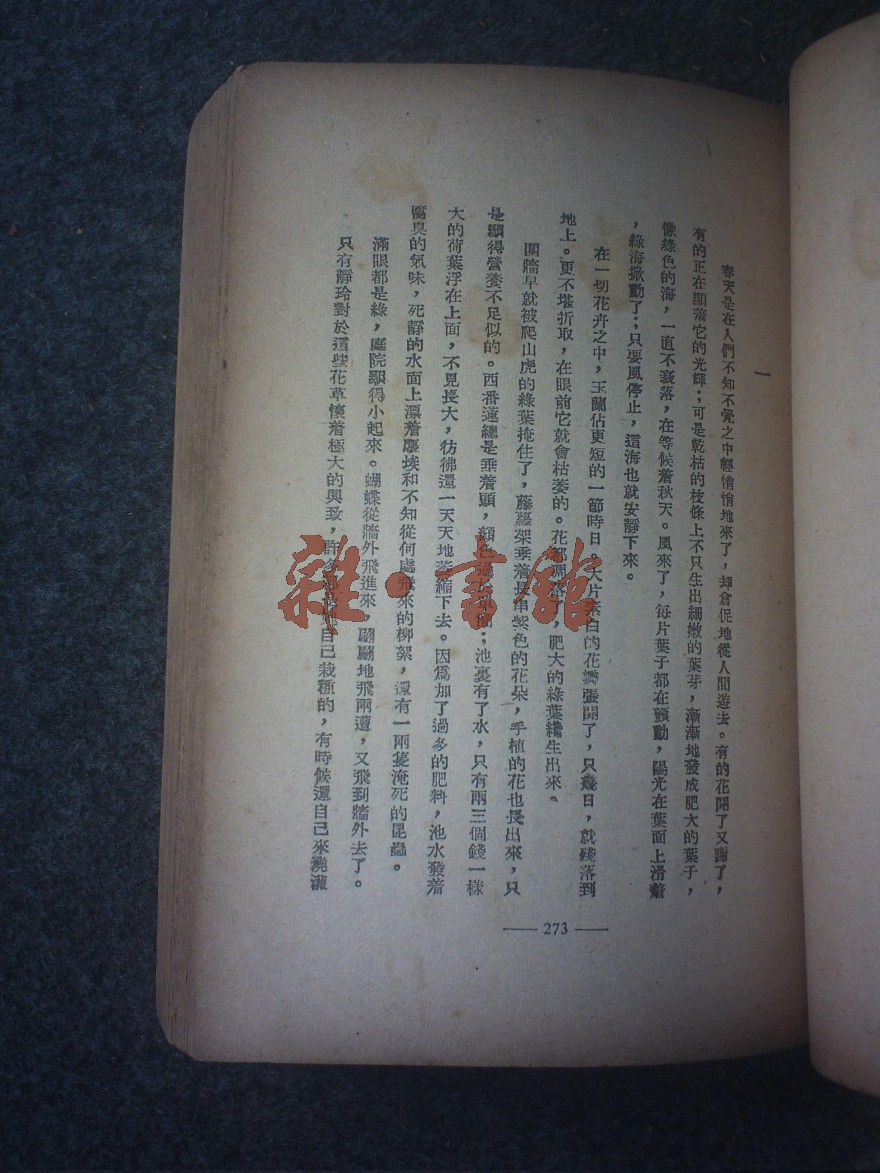 一
春天是在人們不知不覺之中輕悄悄地來了，却倉促地從人間遊去。有的花開了又謝了，
有的正在顯着它的光輝；可是乾枯的枝條上不只生出細嫩的葉芽，漸漸地發成肥大的葉子，
像綠色的海，一直不衰落，在等候着秋天。風來了，每片葉子都在顫動，陽光在葉面上滑着
，綠海掀動了；只要風停止，這海也就安靜下來。
在一切花卉之中，玉蘭佔更短的一節時日。大片素白的花瓣張開了，只幾日，就殘落到
地上。更不堪折取，在眼前它就會枯萎的。花都，肥大的綠葉纔生出來。
圍牆早就被爬山虎的綠葉掩住了，藤蘿架垂着長串紫色的花朵，手植的花也長出來，只
是顯得營養不足似的。西番蓮總是垂着頭，顏色；池裏有了水，只有兩三個錢一樣
大的荷葉浮在上面，不見長大，彷彿還一天天地萎縮下去。因爲加了過多的肥料，池水發着
腐臭的氣味，死靜的水面上漂着塵埃和不知從何處飛來的柳絮，還有一兩隻淹死的昆蟲。
滿眼都是綠，庭院顯得小起來。蝴蝶從牆外飛進來，翩翩地飛兩遭，又飛到牆外去了。
只有靜玲對於這些花草懷着極大的興致，許多自己栽種的，有時候還自己來澆灌
273
雜·書館